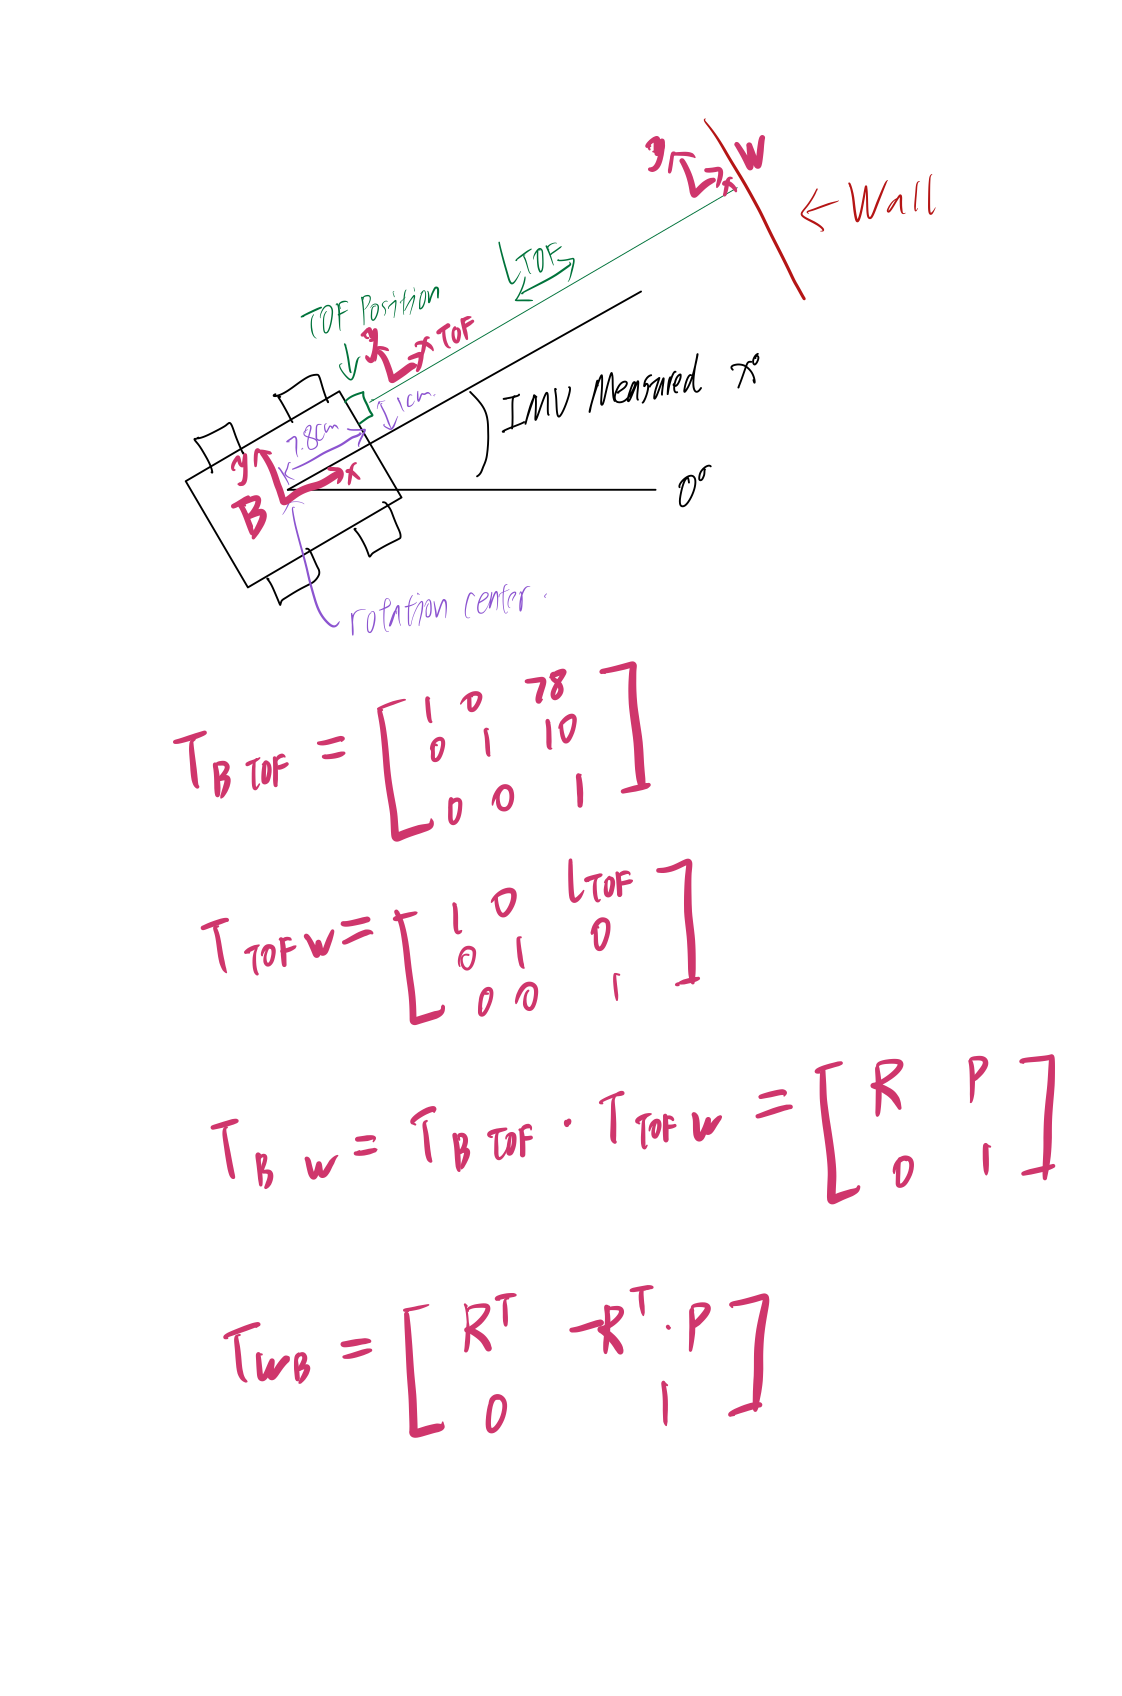 y
W
x
← Wall
LTOF
TOF Position
y
x TOF
1cm.
7.8cm
IMU Measured x°
y
x
B
0°
rotation center.
T_B TOF = [ 1 0 78
0 1 10
0 0 1 ]
T_TOF W = [ 1 0 L_TOF
0 1 0
0 0 1 ]
T_B W = T_B TOF · T_TOF W = [ R P
0 1 ]
T_WB = [ R^T -R^T · P
0 1 ]